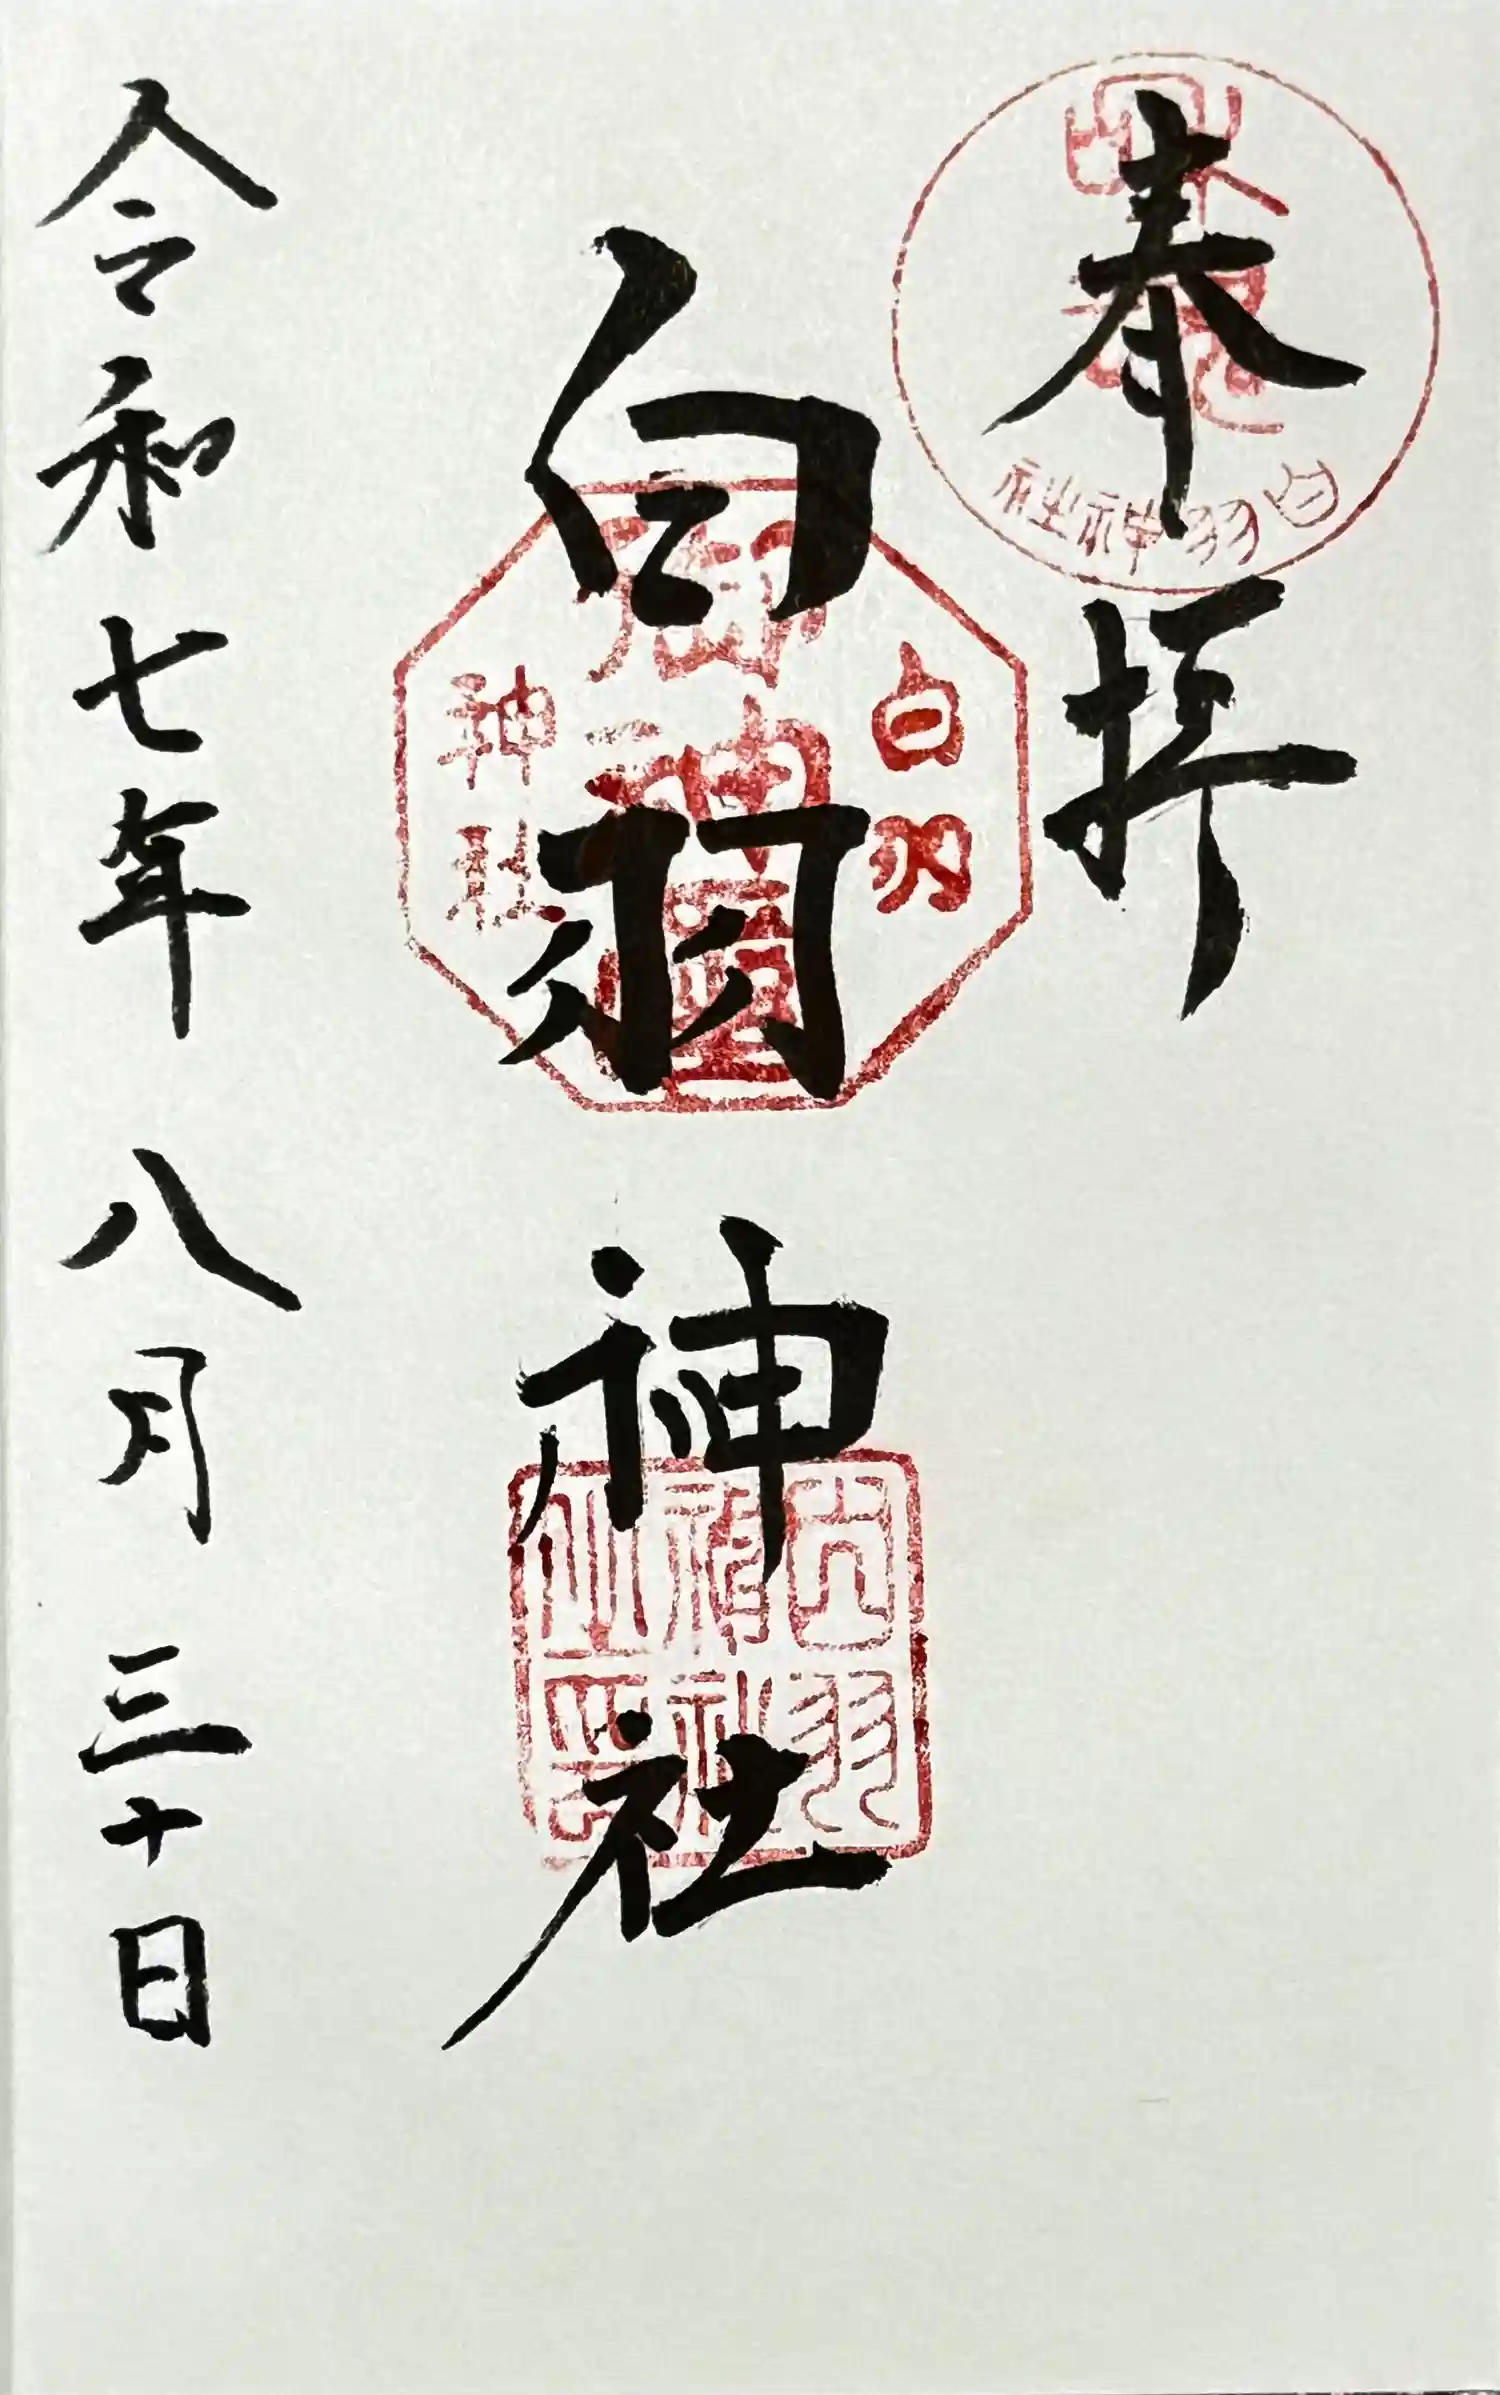 奉拝
白羽神社
白羽神社
白羽
神社
御神璽
白羽神社之印
令和七年八月三十日